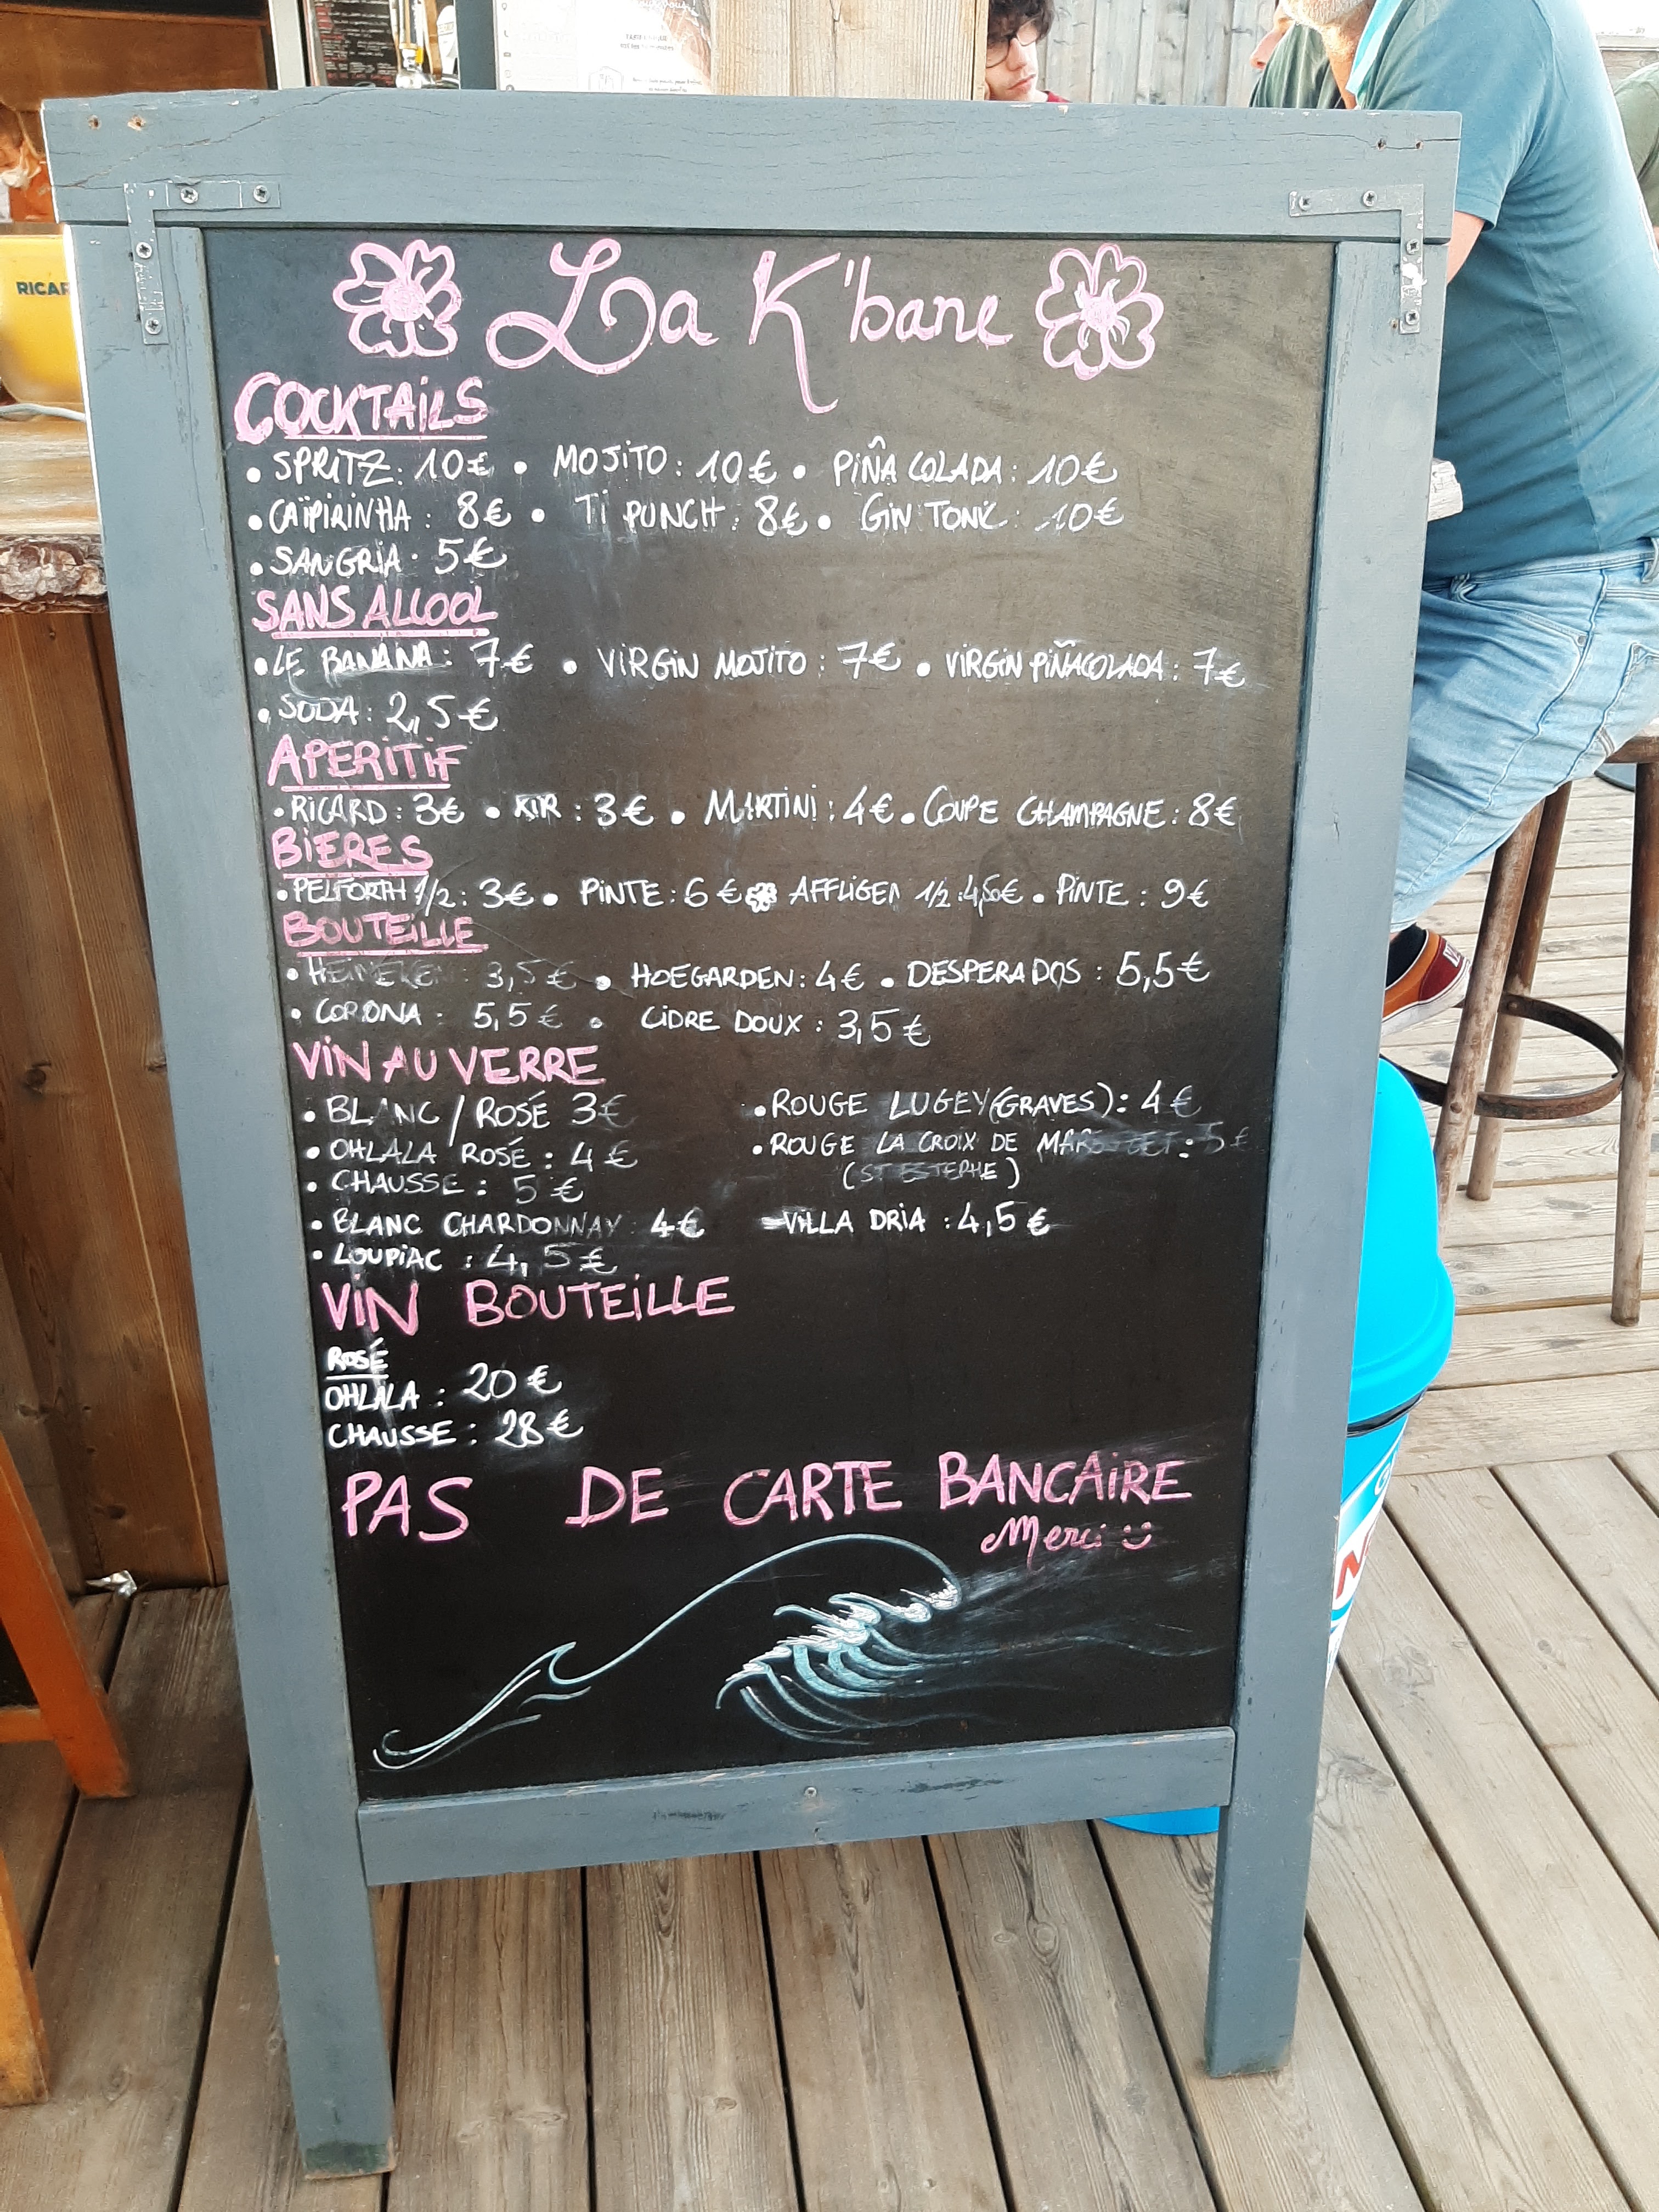 RICAR
La K'bane
COCKTAiLS
• SPRITZ: 10€ • MOJiTO: 10€ • PiÑA COLADA: 10€
• CAÏPIRINHA: 8€ • Ti PUNCH: 8€ • GiN TONiC: 10€
• SANGRiA: 5€
SANS ALCOOL
• LE BANANA: 7€ • ViRGiN MOJiTO: 7€ • ViRGiN PiÑACOLADA: 7€
• SODA: 2,5€
APERiTiF
• RiCARD: 3€ • KIR: 3€ • MARTiNi: 4€ • COUPE CHAMPAGNE: 8€
BiERES
• PELFORTH 1/2: 3€ • PiNTE: 6€ AFFLiGEM 1/2: 4,50€ • PiNTE: 9€
BOUTEiLLE
• HEINEKEN: 3,5€ • HOEGARDEN: 4€ • DESPERADOS: 5,5€
• CORONA: 5,5€ • CiDRE DOUX: 3,5€
ViN AU VERRE
• BLANC / ROSÉ 3€
• OHLALA ROSÉ: 4€
• CHAUSSE: 5€
• BLANC CHARDONNAY 4€
• LOUPiAC: 4,5€
• ROUGE LUGEY (GRAVES): 4€
• ROUGE LA CROIX DE : 5€
(ST ESTEPHE)
- ViLLA DRiA: 4,5€
ViN BOUTEiLLE
ROSÉ
OHLALA: 20€
CHAUSSE: 28€
PAS DE CARTE BANCAiRE
Merci :)